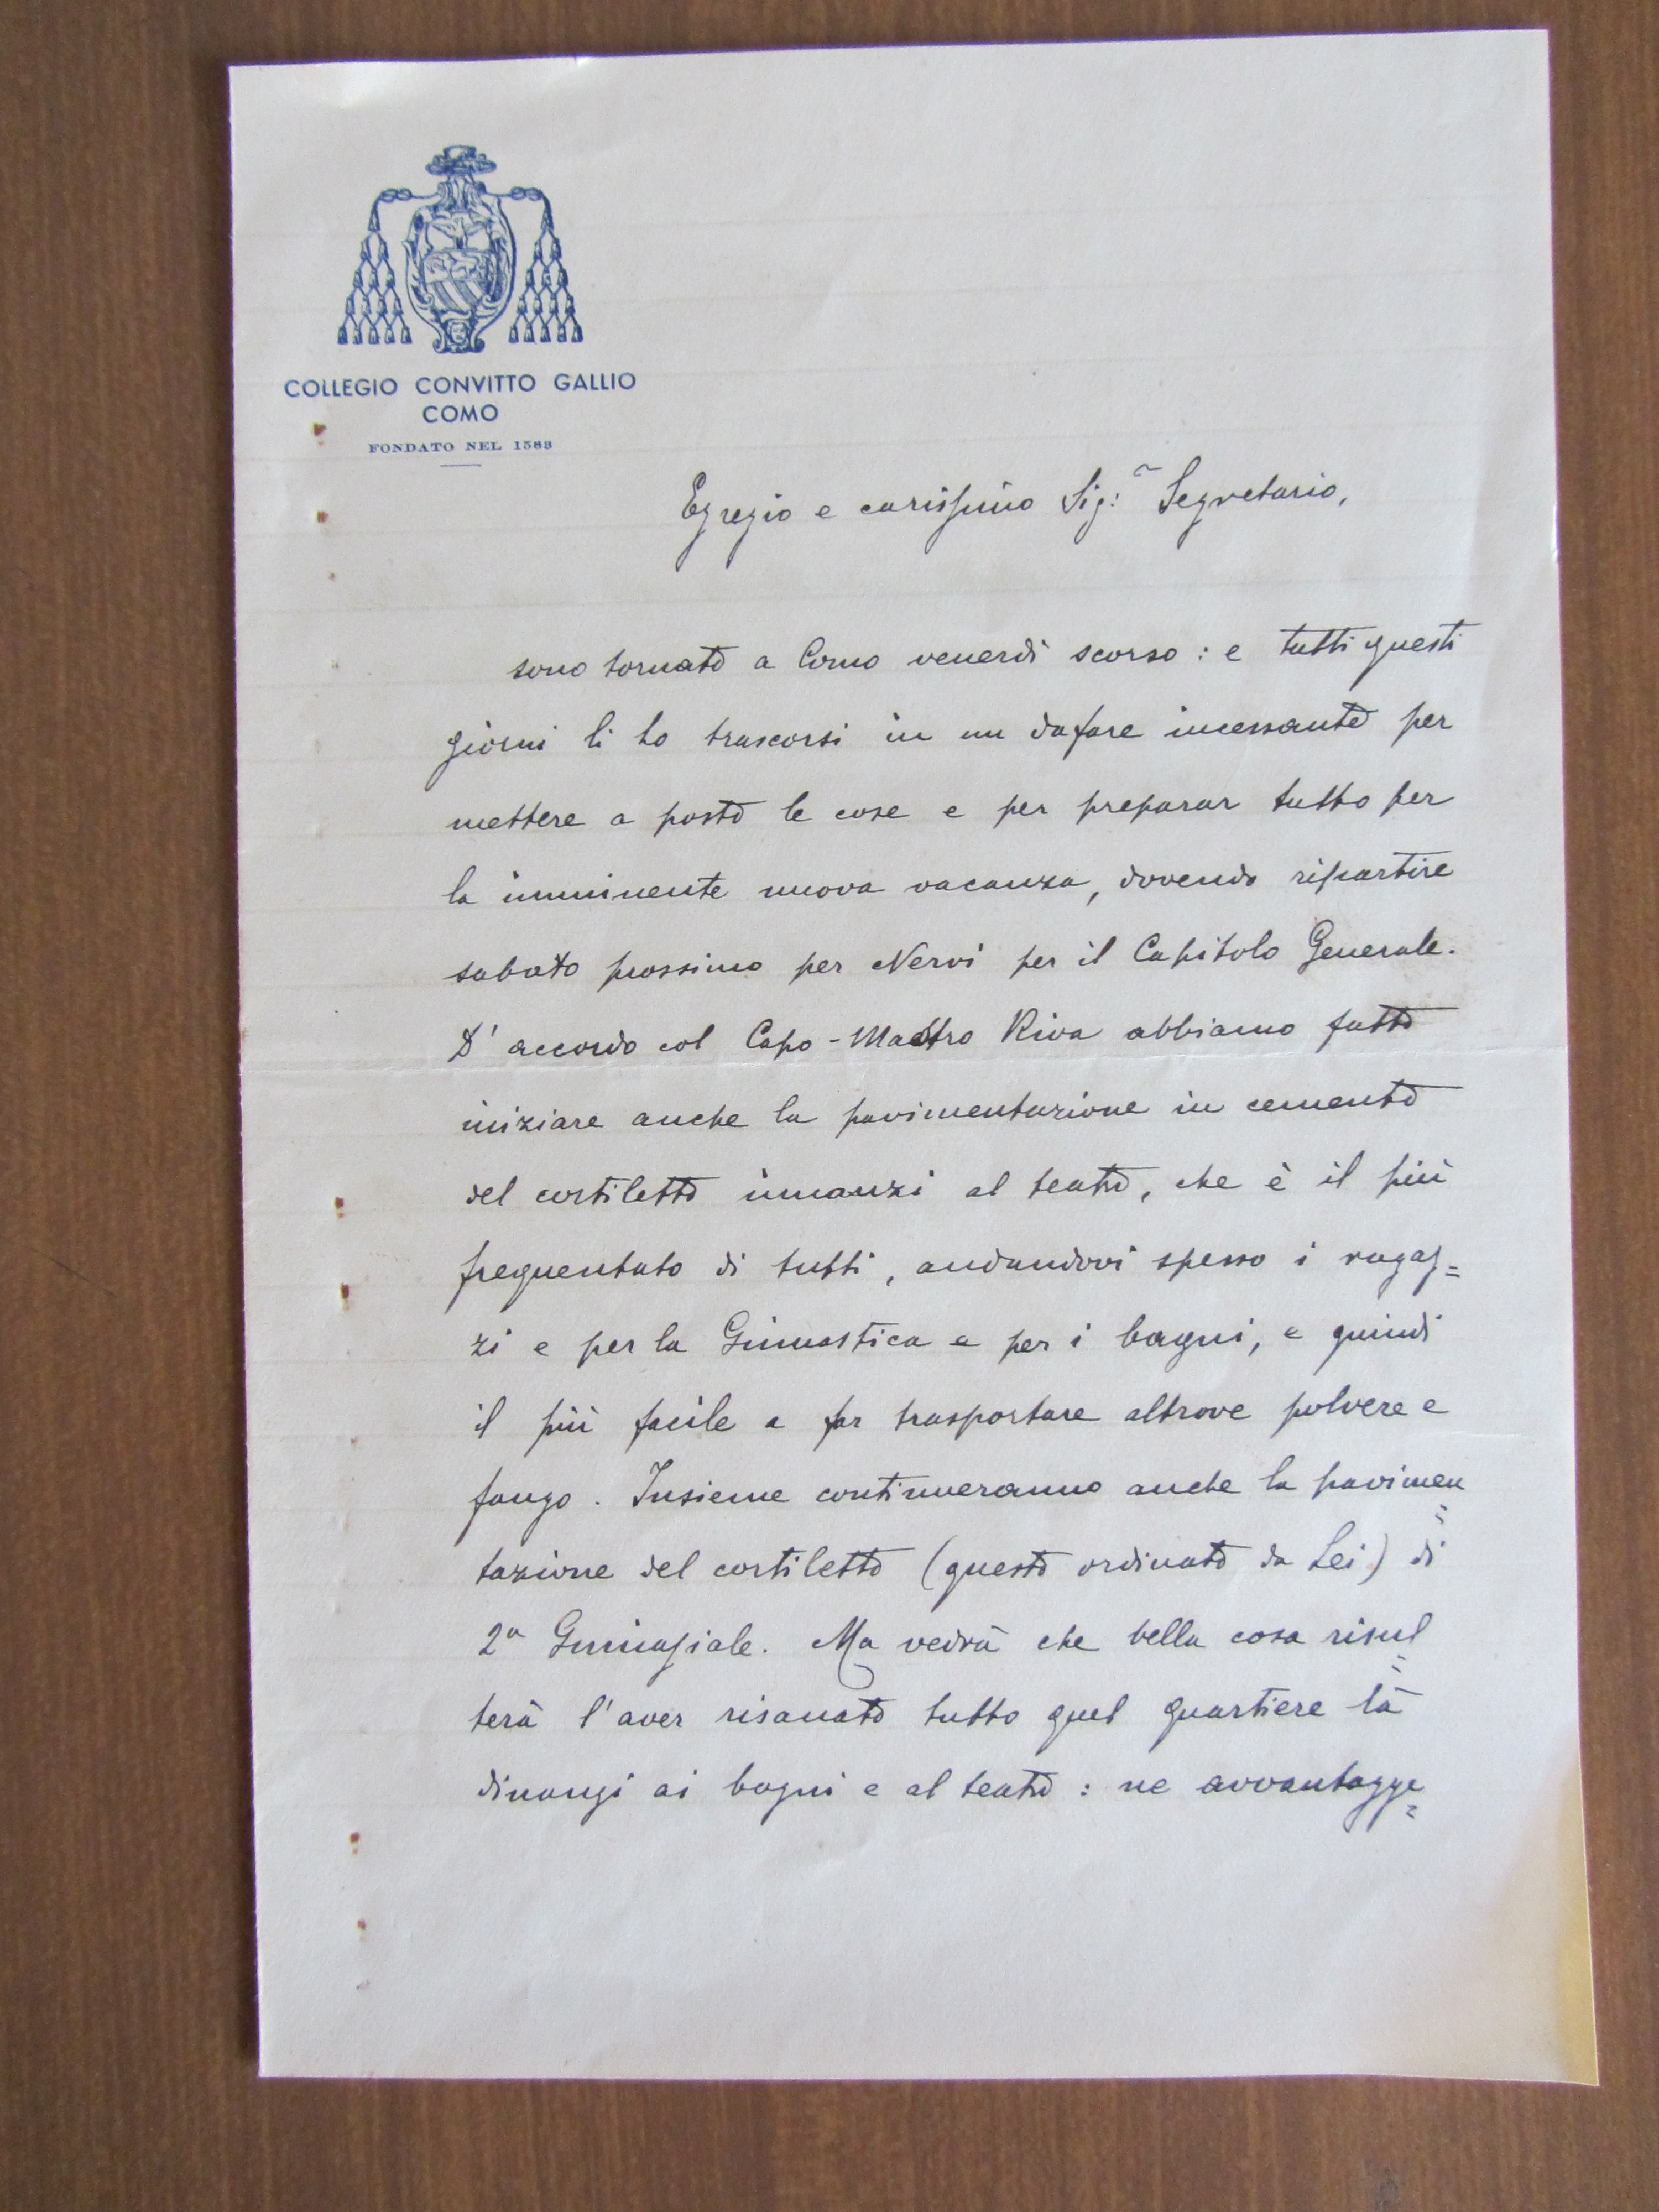 COLLEGIO CONVITTO GALLIO
COMO
FONDATO NEL 1583
Egregio e carissimo Sig:r Segretario,
sono tornato a Como venerdì scorso : e tutti questi
giorni li ho trascorsi in un dafare incessante per
mettere a posto le cose e per preparar tutto per
la imminente nuova vacanza, dovendo ripartire
sabato prossimo per Nervi per il Capitolo Generale.
D'accordo col Capo-Mastro Riva abbiamo fatto
iniziare anche la pavimentazione in cemento
del cortiletto innanzi al teatro, che è il più
frequentato di tutti, andandovi spesso i ragaz=
zi e per la Ginnastica e per i bagni, e quindi
il più facile a far trasportare altrove polvere e
fango. Insieme continueranno anche la pavimen=
tazione del cortiletto (questo ordinato da Lei) di
2a Ginnasiale. Ma vedrà che bella cosa risul=
terà l'aver risanato tutto quel quartiere là
dinanzi ai bagni e al teatro : ne avvantagge=